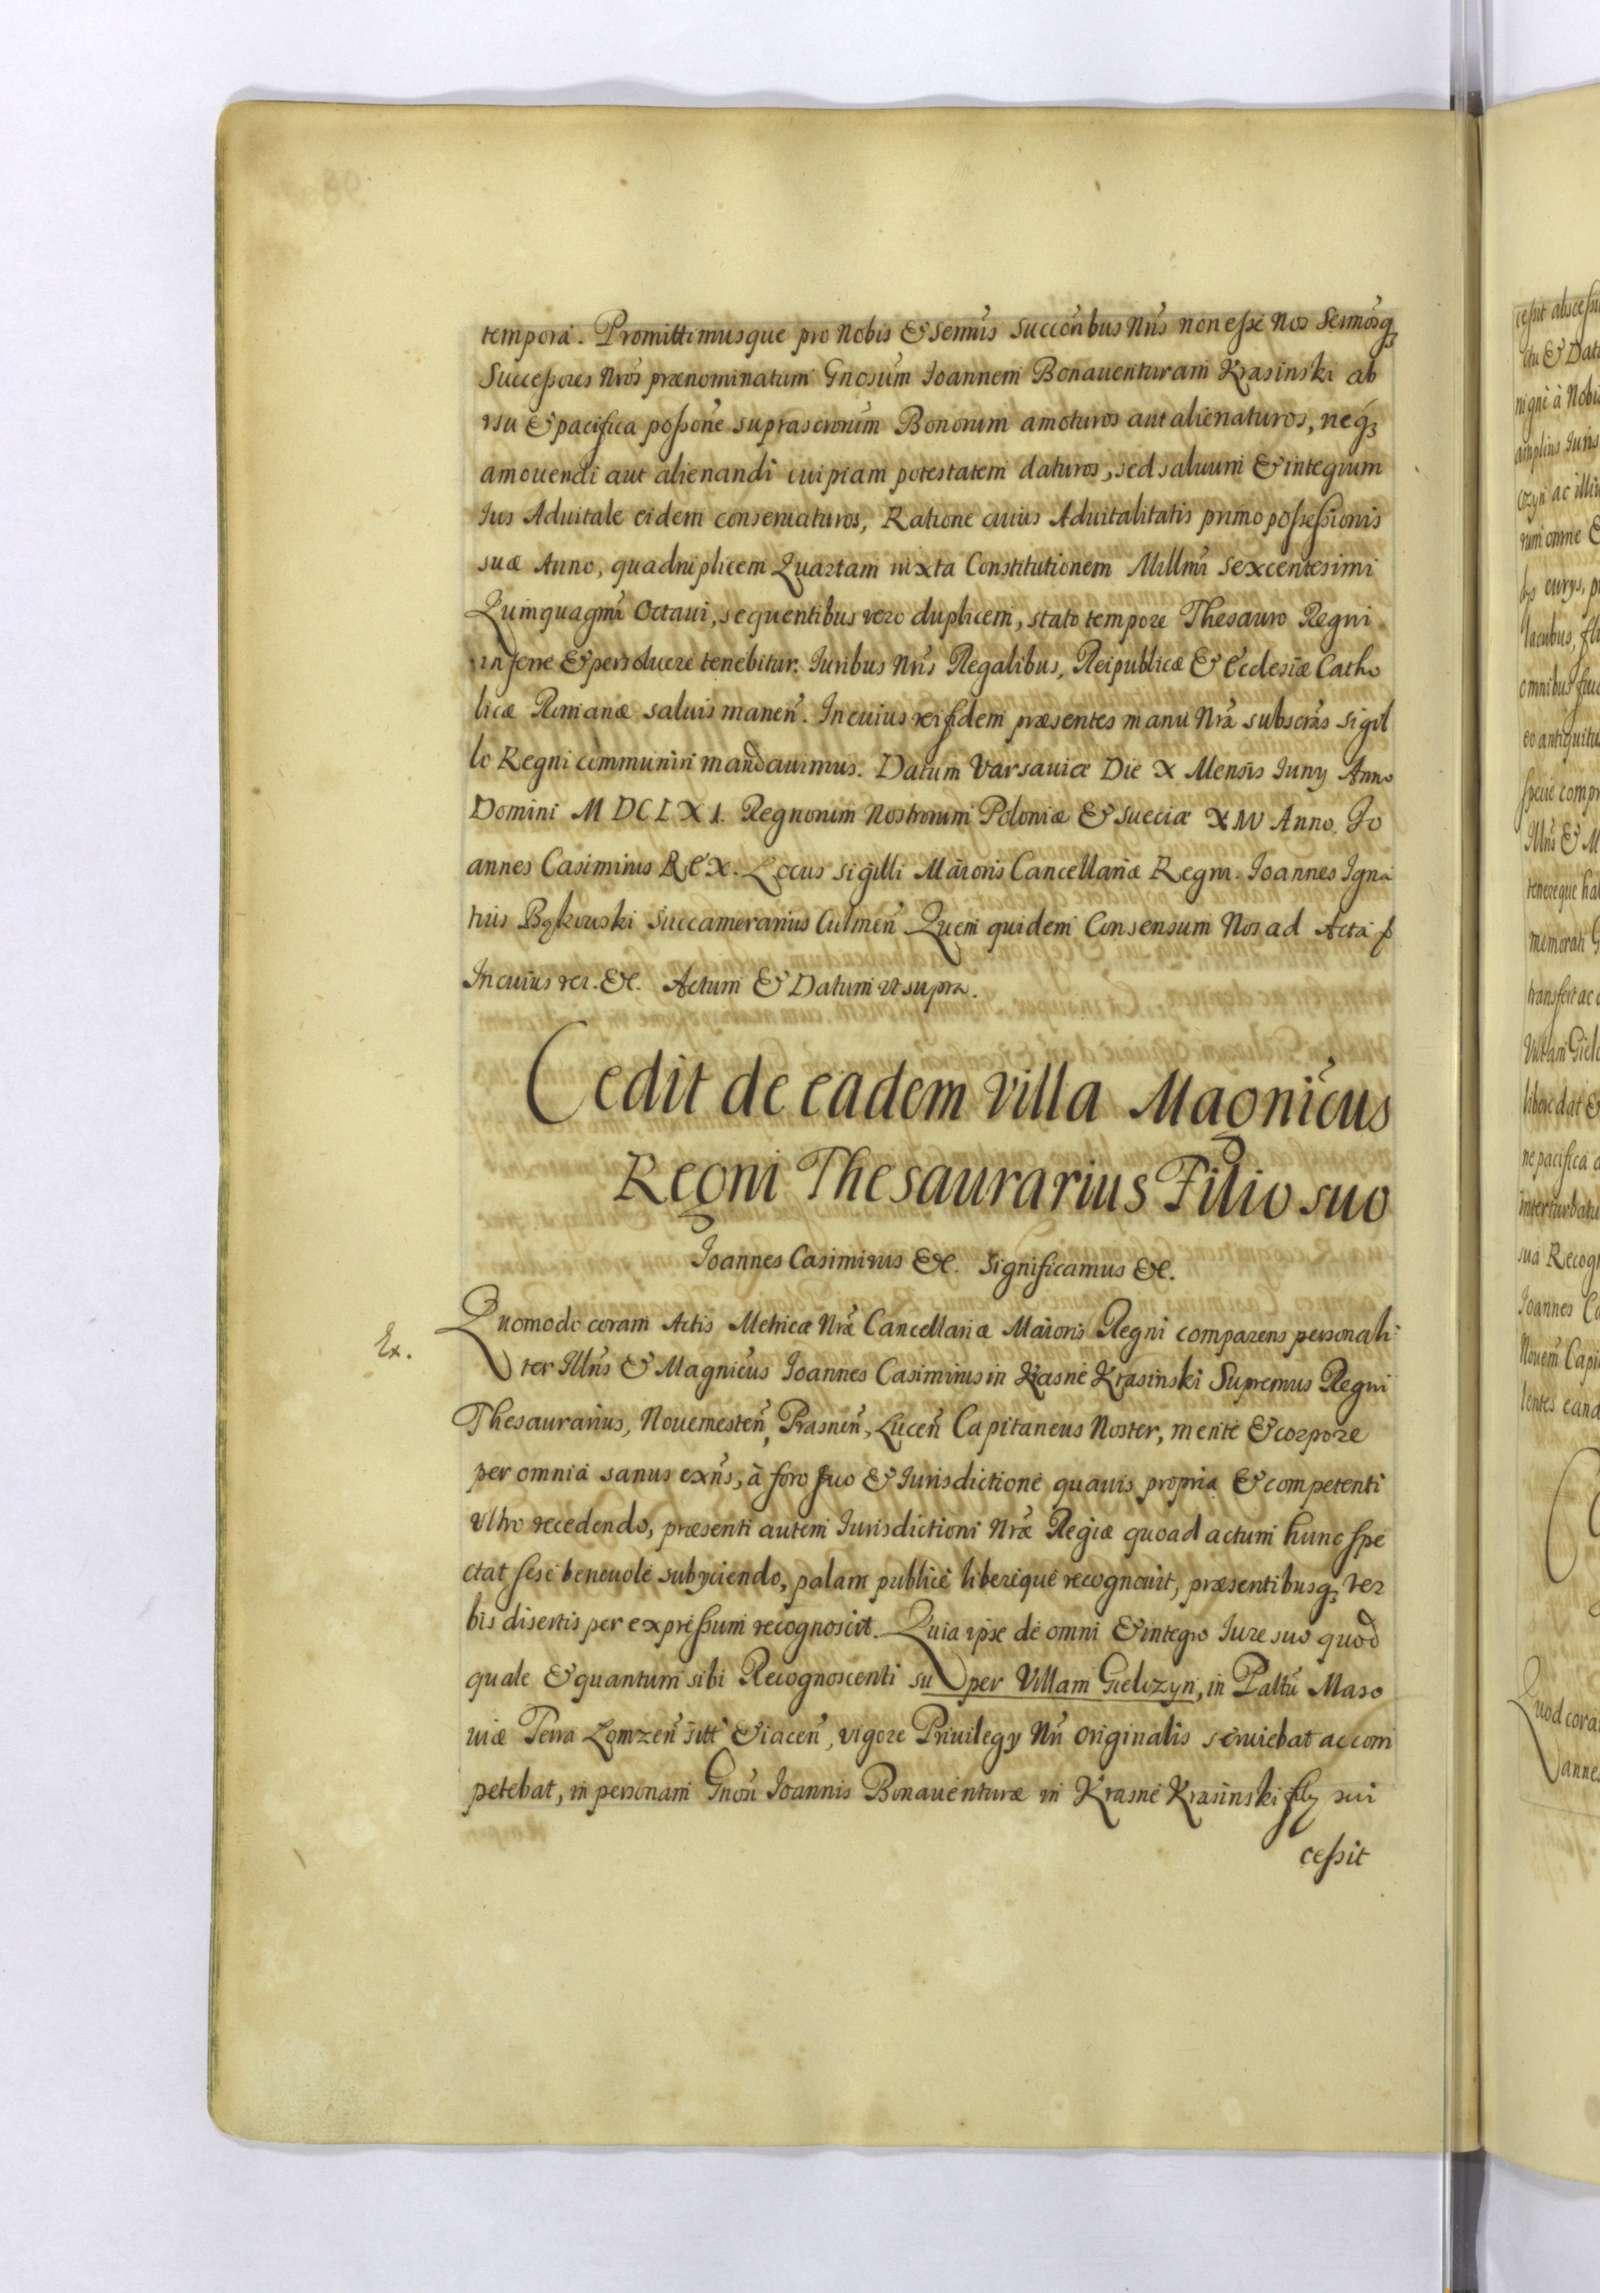 tempora. Promittimusque pro Nobis & Sermis Succoribus Nris non esse Nos Sermosq
Successores Nros prænominatum Gnosum Ioannem Bonauenturam Krasinski ab
vsu & pacifica possone suprascrorum Bonorum amoturos aut alienaturos, neq
amouendi aut alienandi cuipiam potestatem daturos, sed saluum & integrum
Ius Aduitale eidem conseruaturos, Ratione cuius Aduitalitatis primo possessionis
suæ Anno, quadruplicem Quartam iuxta Constitutionem Millmi Sexcentesimi
Quinquagmi Octaui, sequentibus vero duplicem, stato tempore Thesauro Regni
inferre & persoluere tenebitur. Iuribus Nris Regalibus, Reipublicæ & Ecclesiæ Catho
licæ Romanæ saluis manen. In cuius rei fidem præsentes manu Nra subscras sigil
lo Regni communiri mandauimus. Datum Varsauiæ Die X Mensis Iuny Anno
Domini MDCLXI. Regnorum Nostrorum Poloniæ & Sueciæ XIII Anno. Io
annes Casimirus REX. Locus Sigilli Maioris Cancellariæ Regni. Ioannes Igna
tius Bąkowski Succamerarius Culmen Quem quidem Consensum Nos ad Acta p
In cuius rei. &c. Actum & Datum vt supra.
Cedit de eadem Villa Magnicus
Regni Thesaurarius Filio suo
Ioannes Casimirus &c. Significamus &c.
Ex.
Quomodo coram Actis Metricæ Nræ Cancellariæ Maioris Regni comparens personali
ter Illris & Magnicus Ioannes Casimirus in Krasne Krasinski Supremus Regni
Thesaurarius, Nouemesten, Prasnen, Lucen Capitaneus Noster, mente & corpore
per omnia sanus exns, à foro suo & Iurisdictione quauis propria & competenti
vltro recedendo, præsenti autem Iurisdictioni Nræ Regiæ quoad actum hunc spe
ctat sese beneuole subyciendo, palam publicè libereque recognouit, præsentibusq ver
bis disertis per expressum recognoscit. Quia ipse de omni & integro Iure suo quod
quale & quantum sibi Recognoscenti super Villam Giełczyn, in Paltu Maso
uiæ Terra Lomzen sitt & iacen, vigore Priuilegy Nri Originalis seruiebat ac com
petebat, in personam Gnosi Ioannis Bonauenturæ in Krasne Krasinski fily sui
cessit